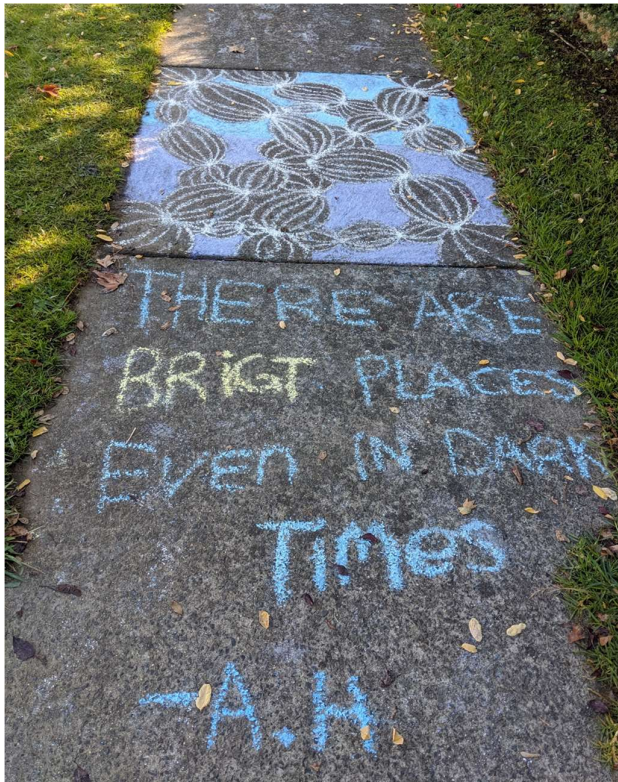 THERE ARE
BRIGT PLACES
EVEN IN DARK
TIMES
-A.H.